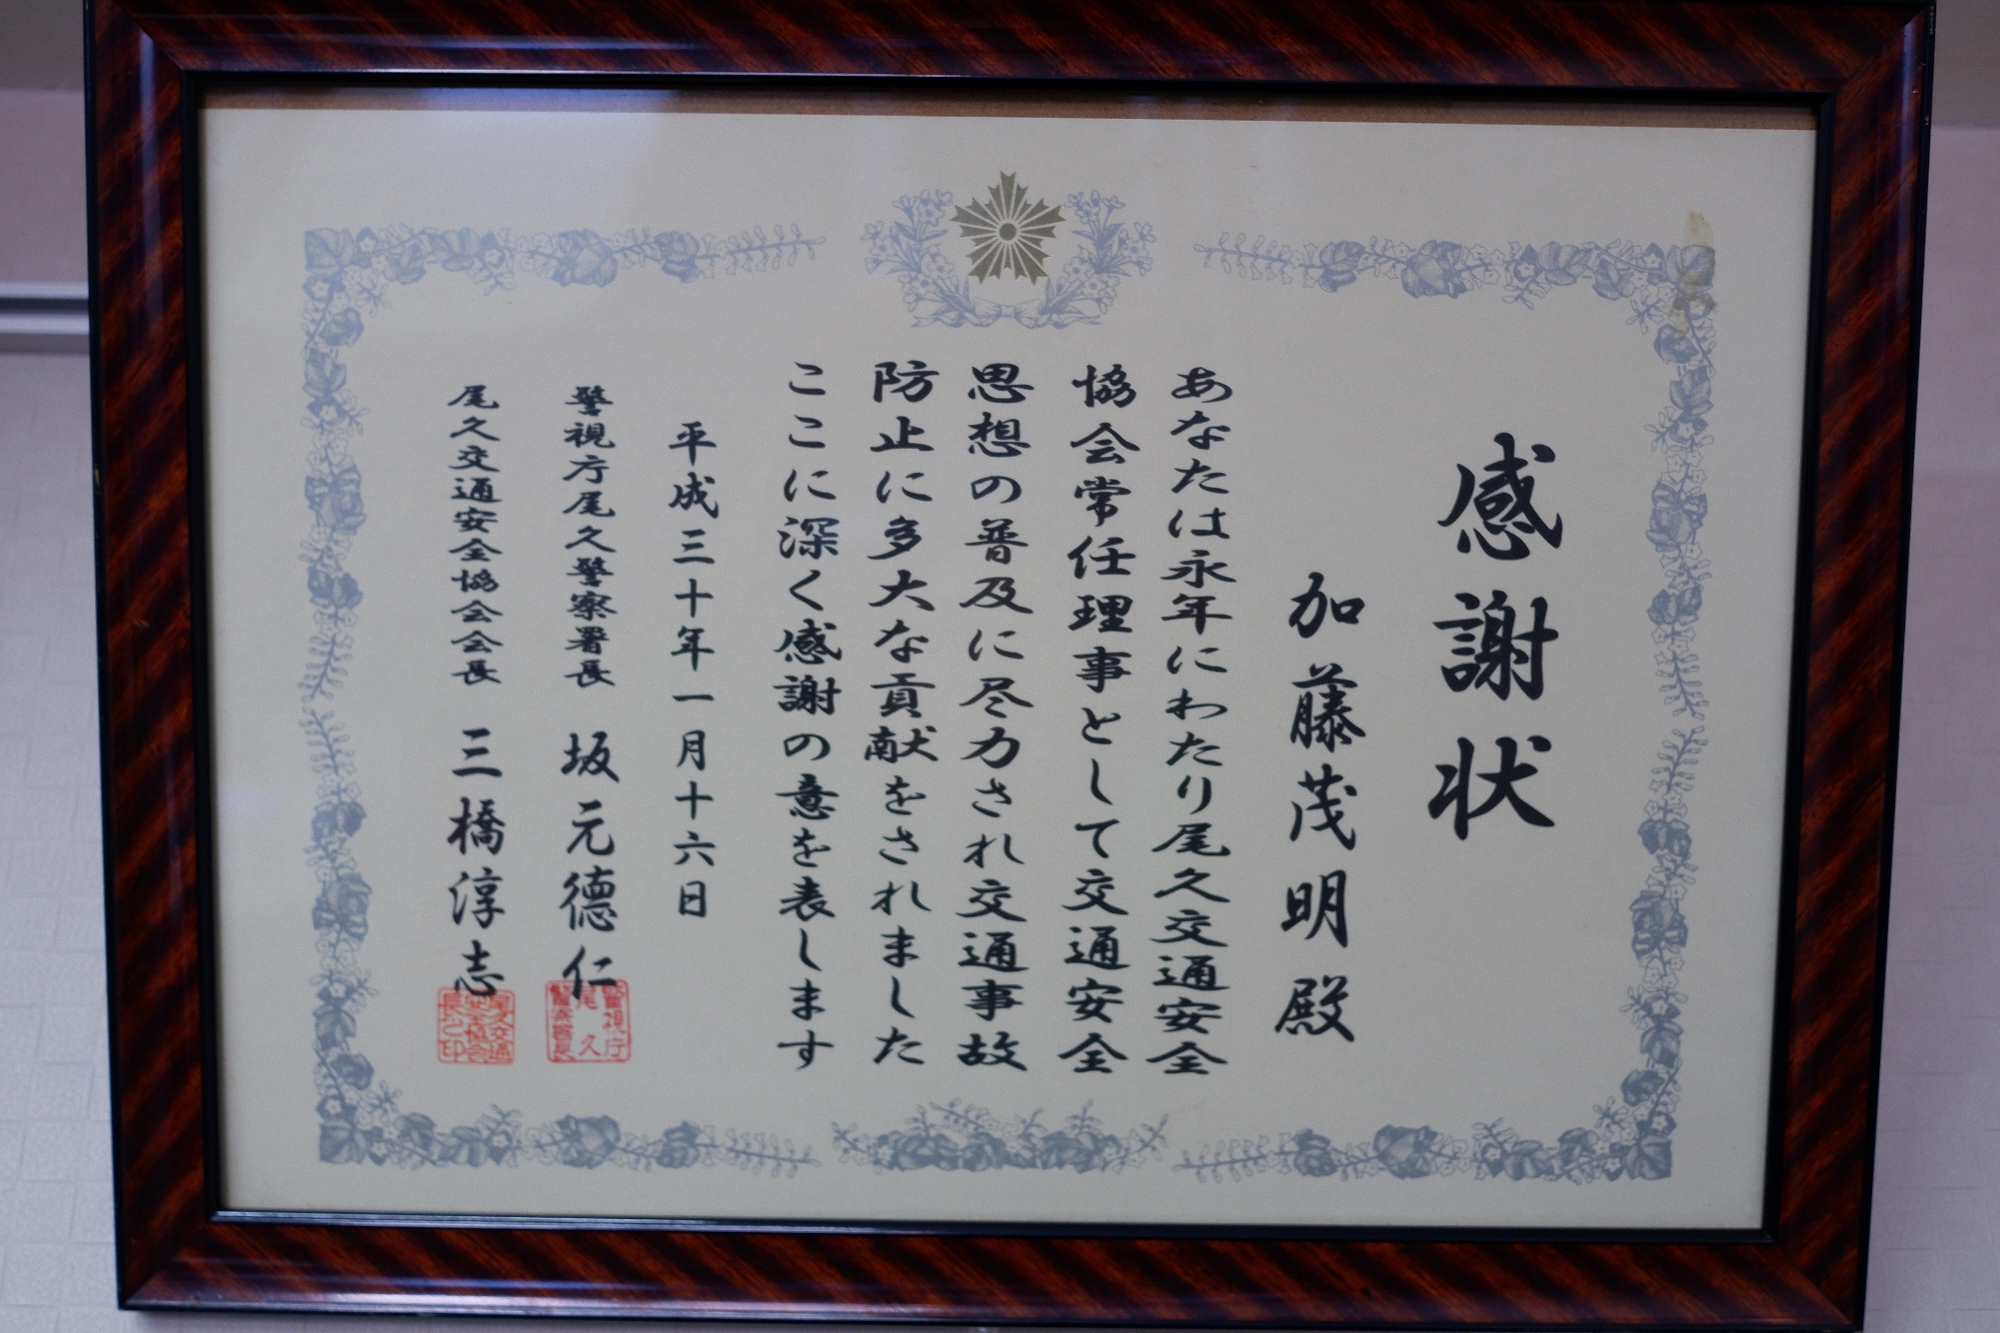 感謝状
加藤茂明殿
あなたは永年にわたり尾久交通安全
協会常任理事として交通安全
思想の普及に尽力され交通事故
防止に多大な貢献をされました
ここに深く感謝の意を表します
平成三十年一月十六日
警視庁尾久警察署長 坂元德仁
警視庁尾久警察署長
尾久交通安全協会会長 三橋淳志
尾久交通安全協会長之印